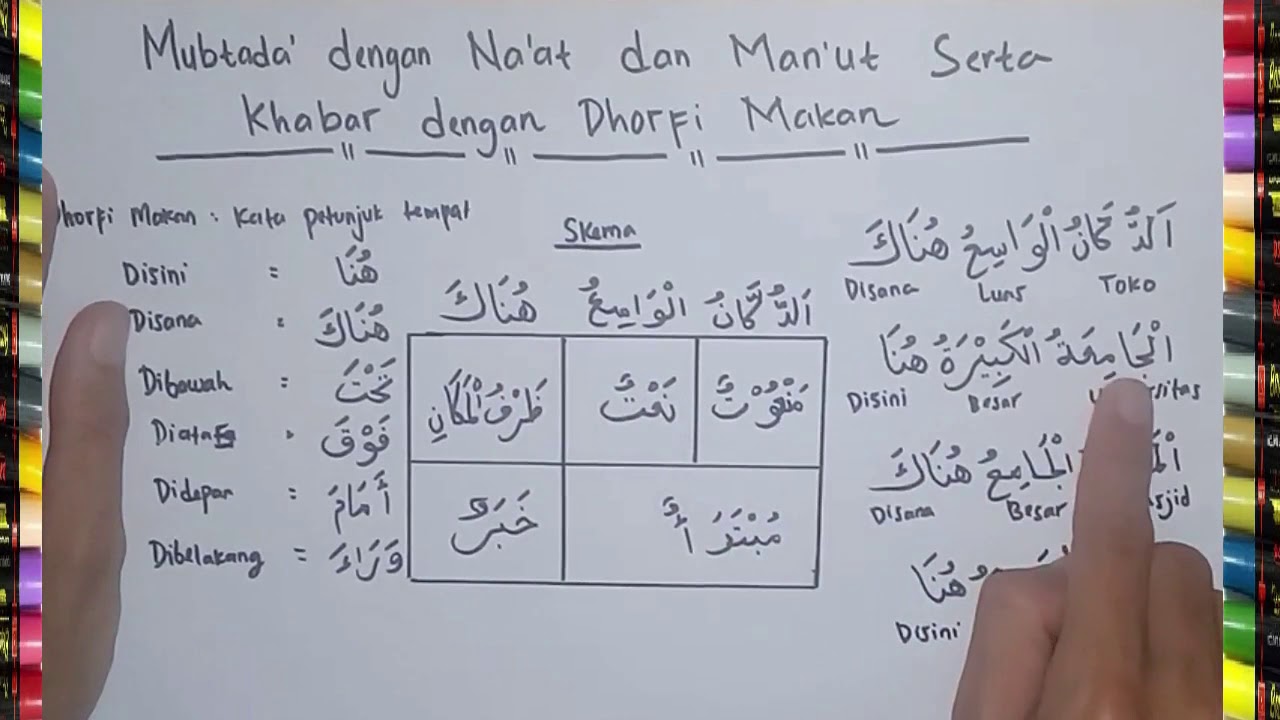 Mubtada' dengan Na'at dan Man'ut Serta
Khabar dengan Dhorfi Makan
Dhorfi Makan : Kata petunjuk tempat
Disini = هُنَا
Disana = هُنَاكَ
Dibawah = تَحْتَ
Diatas = فَوْقَ
Didepan = أَمَامَ
Dibelakang = وَرَاءَ
Skema
اَلدُّكَّانُ الْوَاسِعُ هُنَاكَ
مَنْعُوْتٌ نَعْتٌ ظَرْفُ الْمَكَانِ
مُبْتَدَأٌ خَبَرٌ
اَلدُّكَّانُ الْوَاسِعُ هُنَاكَ
Disana Luas Toko
الْجَامِعَةُ الْكَبِيْرَةُ هُنَا
Disini Besar
الْجَامِعُ هُنَاكَ
Disana Besar
هُنَا
Disini